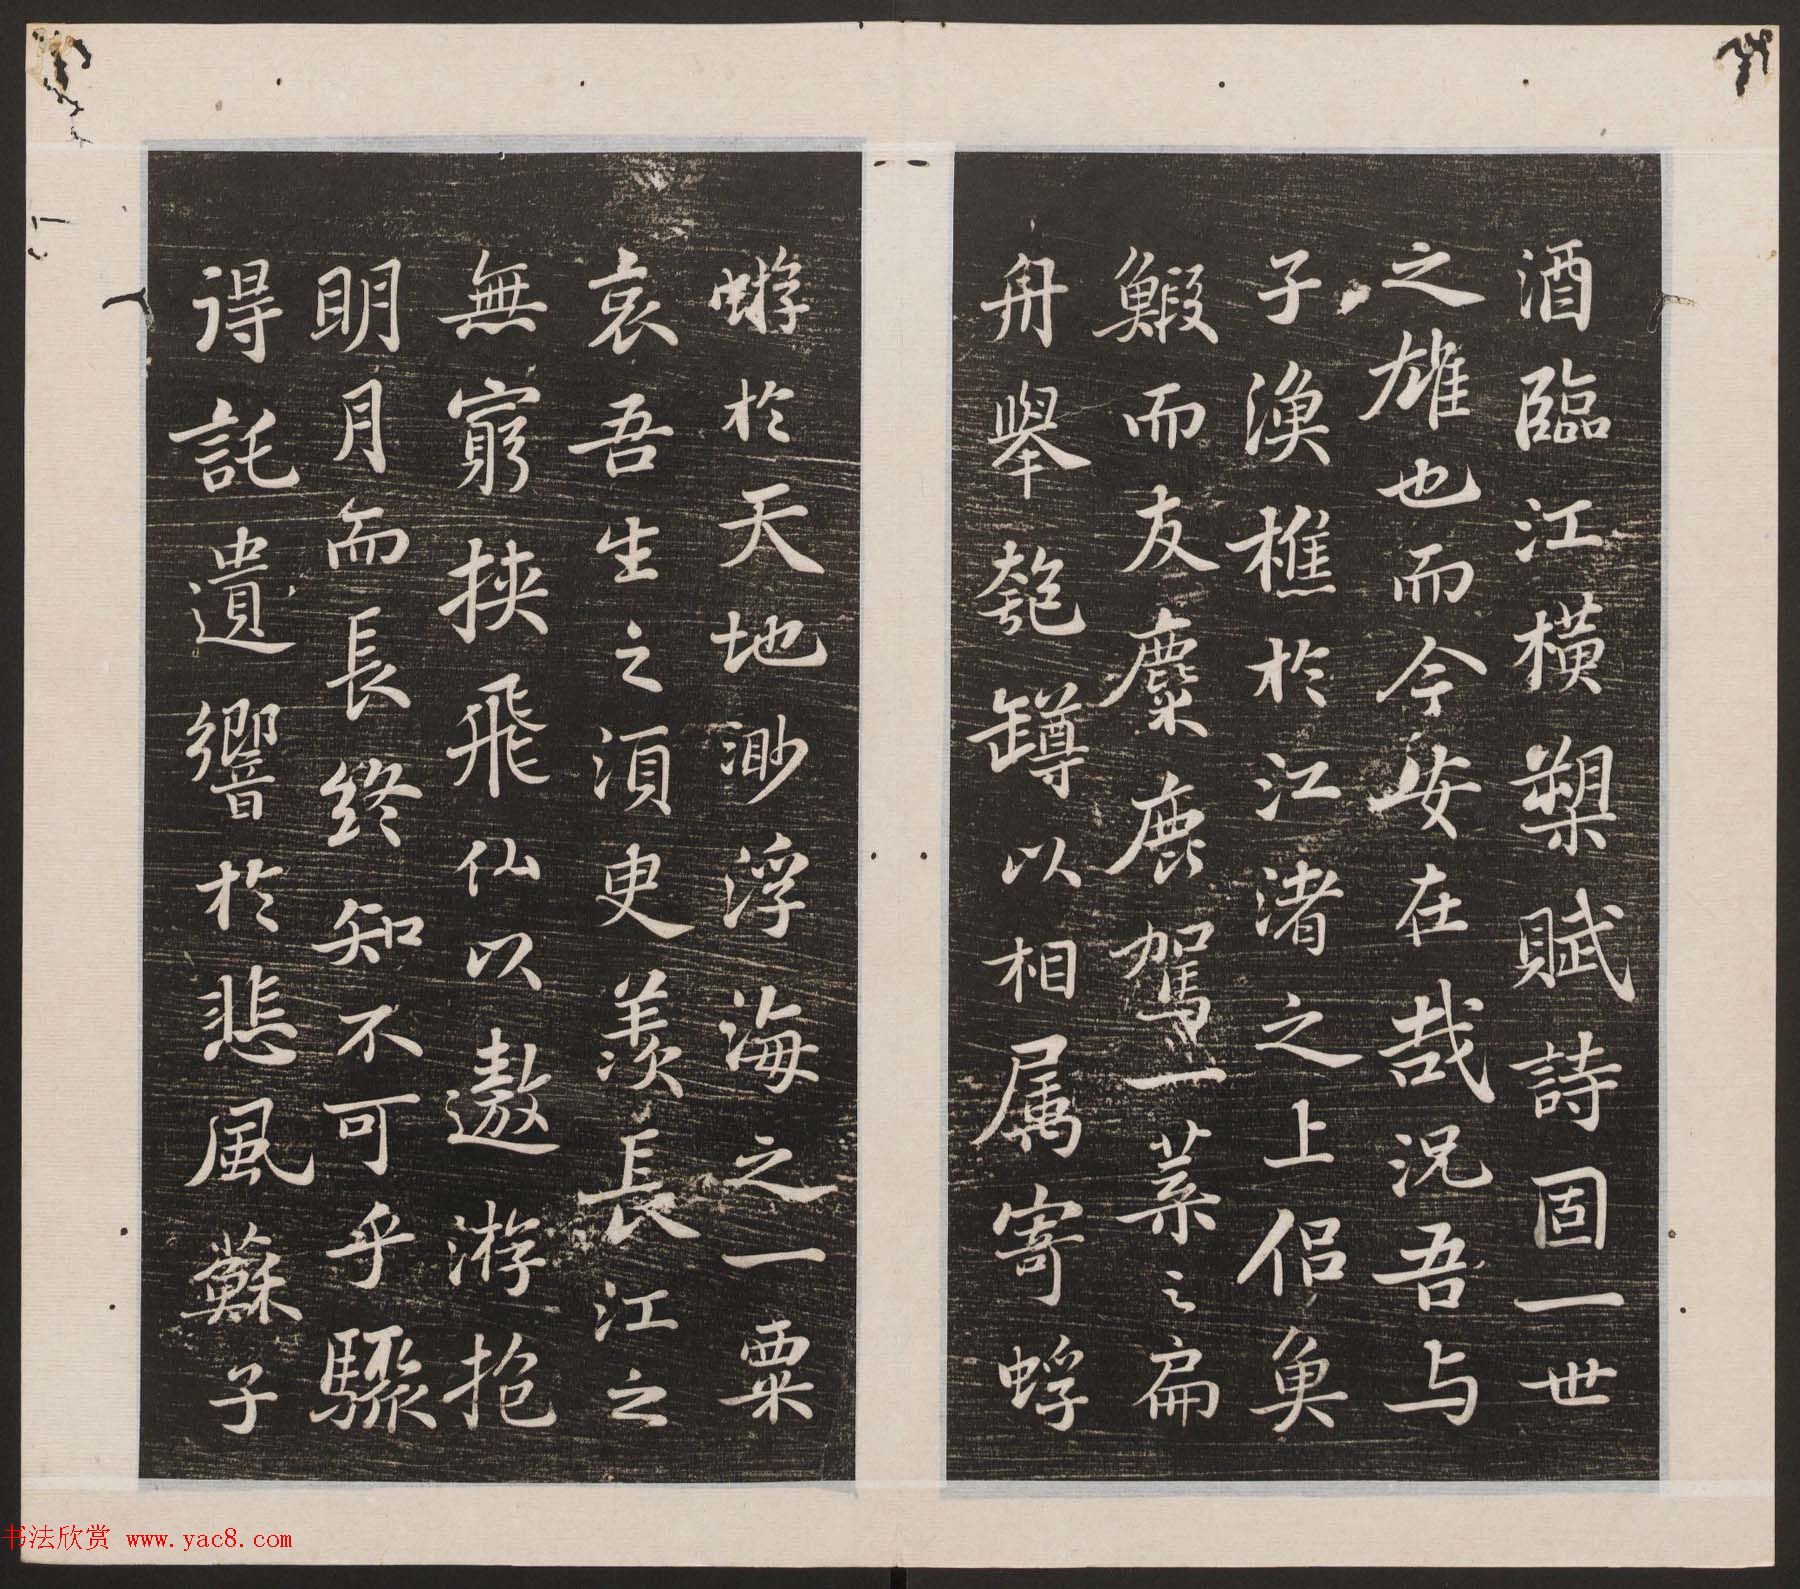 酒臨江橫槊賦詩固一世
之雄也而今安在哉況吾与
子漁樵於江渚之上侣魚
鰕而友麋鹿駕一葉之扁
舟舉匏罇以相属寄蜉
蝣於天地渺浮海之一粟
哀吾生之須更羡長江之
無窮挾飛仙以遨游抱
明月而長終知不可乎驟
得託遺響於悲風蘇子
书法欣赏 www.yac8.com